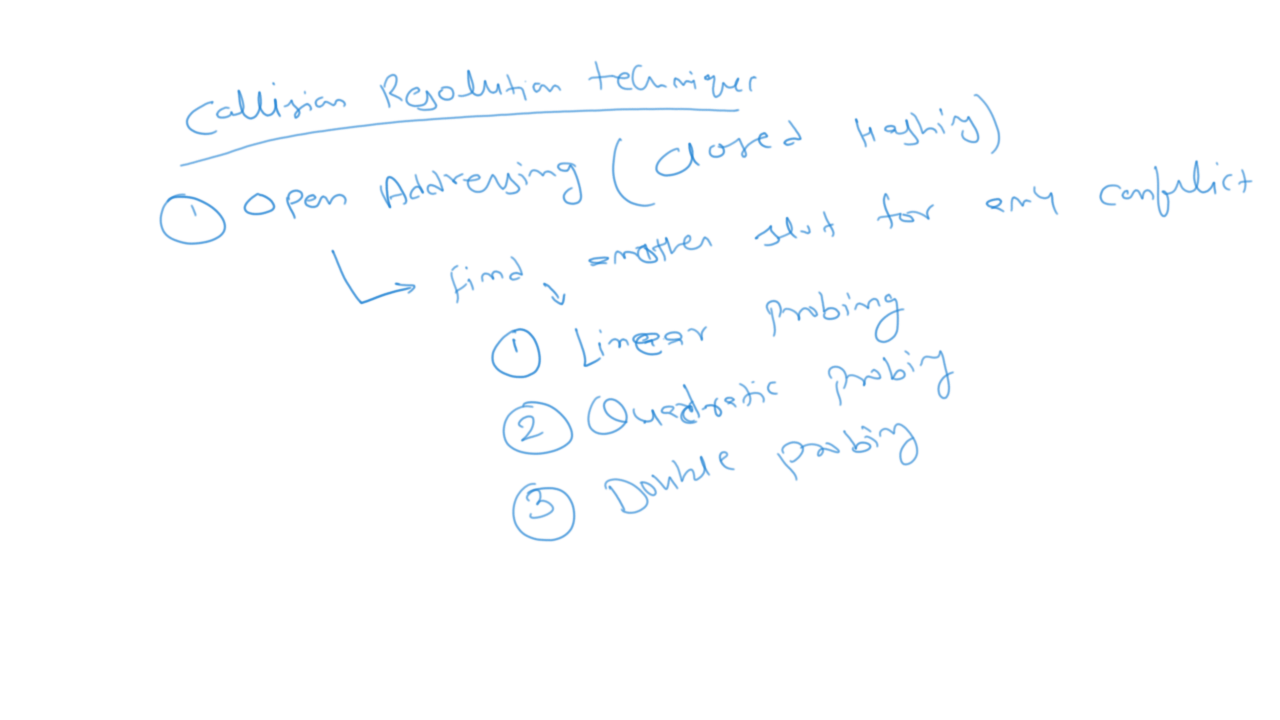 Collision Resolution techniques
① Open Addressing (Closed Hashing)
↳ find another slot for any conflict
① Linear Probing
② Quadratic Probing
③ Double Probing